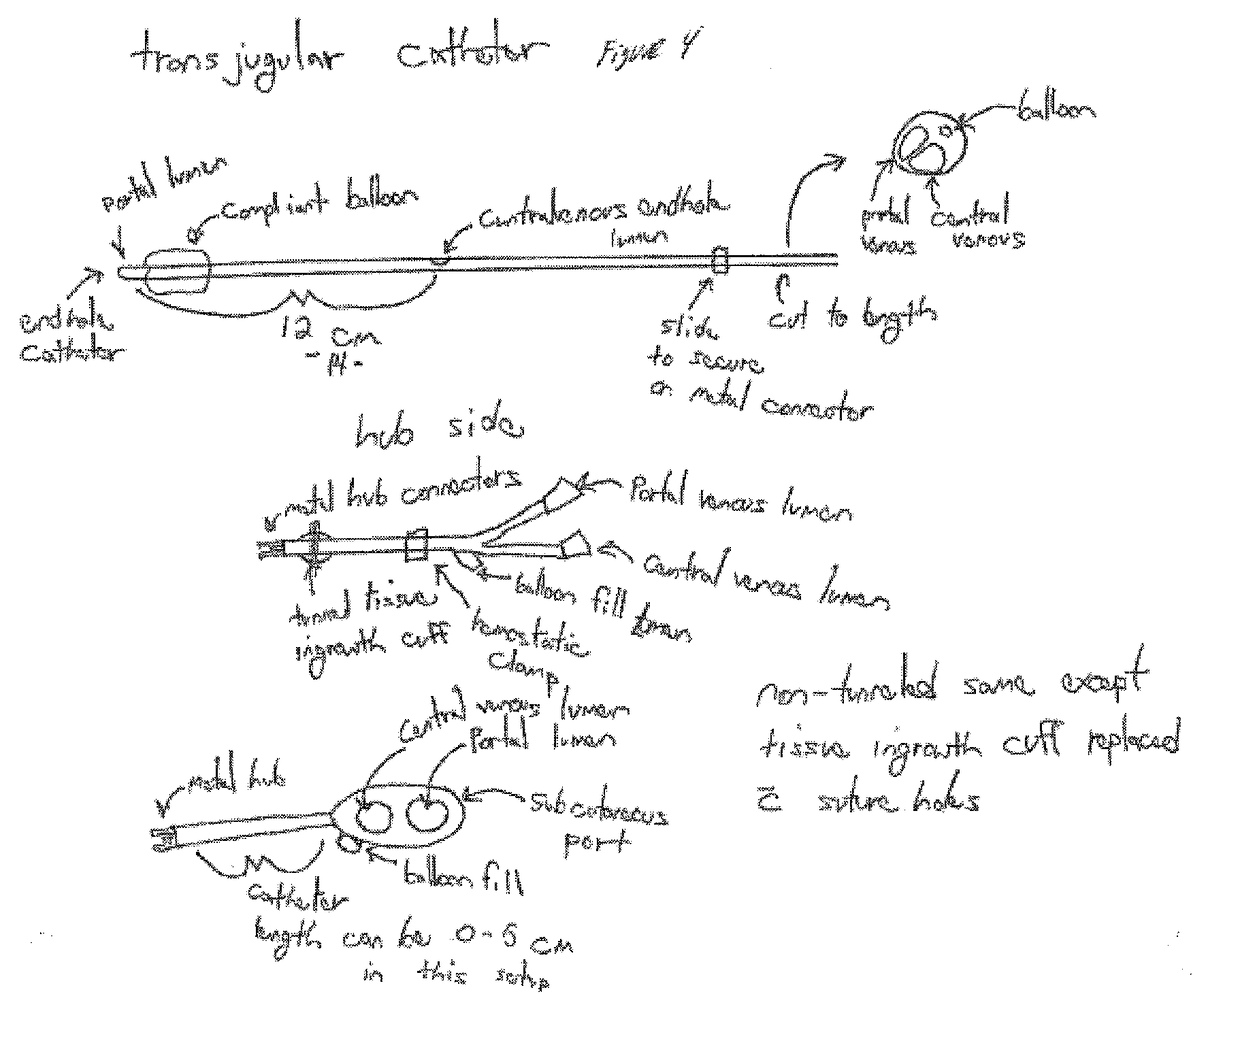 transjugular catheter Figure 4
balloon
portal lumen
compliant balloon
Centralvenous endhole
lumen
portal
venous
central
venous
endhole
Catheter
12 cm
- 14 -
slide
to secure
on metal connector
cut to length
hub side
metal hub connectors
Portal venous lumen
Central venous lumen
balloon fill lumen
tunnel tissue
ingrowth cuff
hemostatic
clamp
Central venous lumen
Portal lumen
metal hub
Subcutaneous
port
balloon fill
catheter
length can be 0-5 cm
in this setup
non-tunneled same except
tissue ingrowth cuff replaced
c̄ suture holes